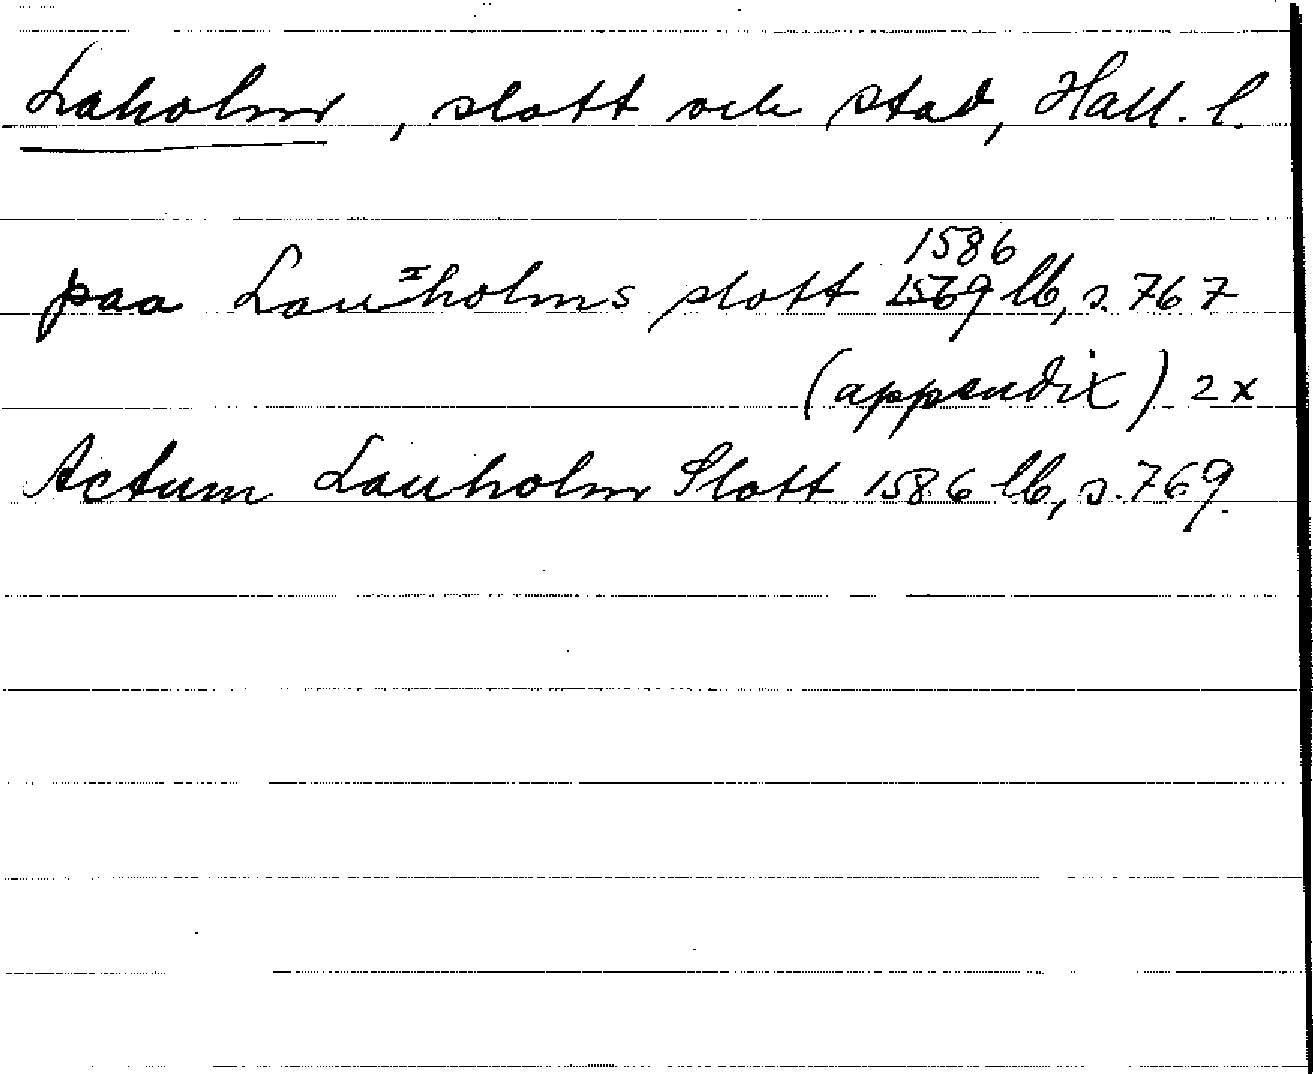 Laholm, slott och stad, Hall. l.
1586
paa Lau=holms slott 1569 lb, s. 767
(appendix) 2x
Actum Lauholm Slott 1586 lb, s. 769.